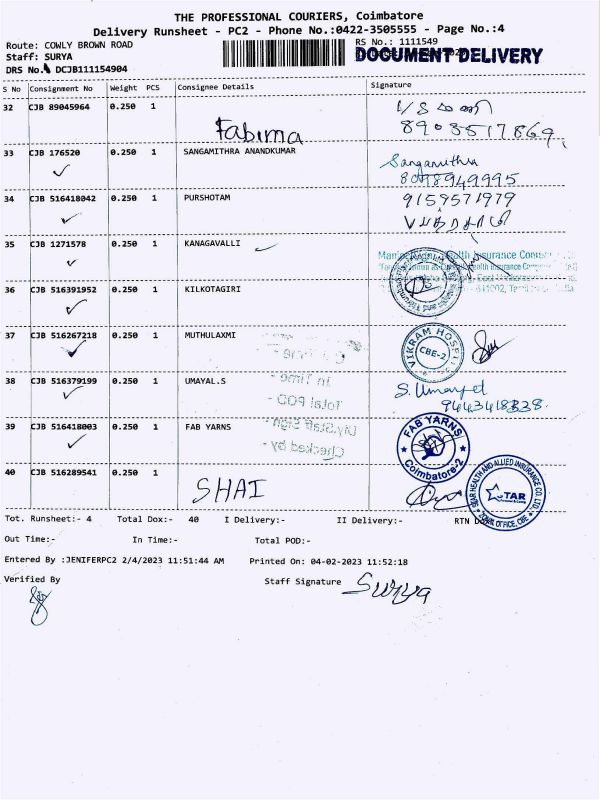 THE PROFESSIONAL COURIERS, Coimbatore
Delivery Runsheet - PC2 - Phone No.:0422-3505555 - Page No.:4
Route: COWLY BROWN ROAD
RS No.: 1111549
Staff: SURYA
DOCUMENT DELIVERY
DRS No. DCJB111154904
S No Consignment No Weight PCS Consignee Details Signature
32 CJB 89045964 0.250 1
Fabima
8903517869
33 CJB 176520 0.250 1 SANGAMITHRA ANANDKUMAR
Sangamithra
34 CJB 516418042 0.250 1 PURSHOTAM
9159571979
35 CJB 1271578 0.250 1 KANAGAVALLI
36 CJB 516391952 0.250 1 KILKOTAGIRI
37 CJB 516267218 0.250 1 MUTHULAXMI
VIKRAM HOSPITAL
CBE-2
In Time -
38 CJB 516379199 0.250 1 UMAYAL.S
Total POD -
39 CJB 516418003 0.250 1 FAB YARNS
Dly.Staff Sign -
Checked by -
FAB YARNS
Coimbatore-2
40 CJB 516289541 0.250 1
SHAI
STAR HEALTH AND ALLIED INSURANCE CO. LTD.
STAR
ZONAL OFFICE, CBE
Tot. Runsheet:- 4 Total Dox:- 40 I Delivery:- II Delivery:- RTN
Out Time:- In Time:- Total POD:-
Entered By :JENIFERPC2 2/4/2023 11:51:44 AM Printed On: 04-02-2023 11:52:18
Verified By Staff Signature
Surya